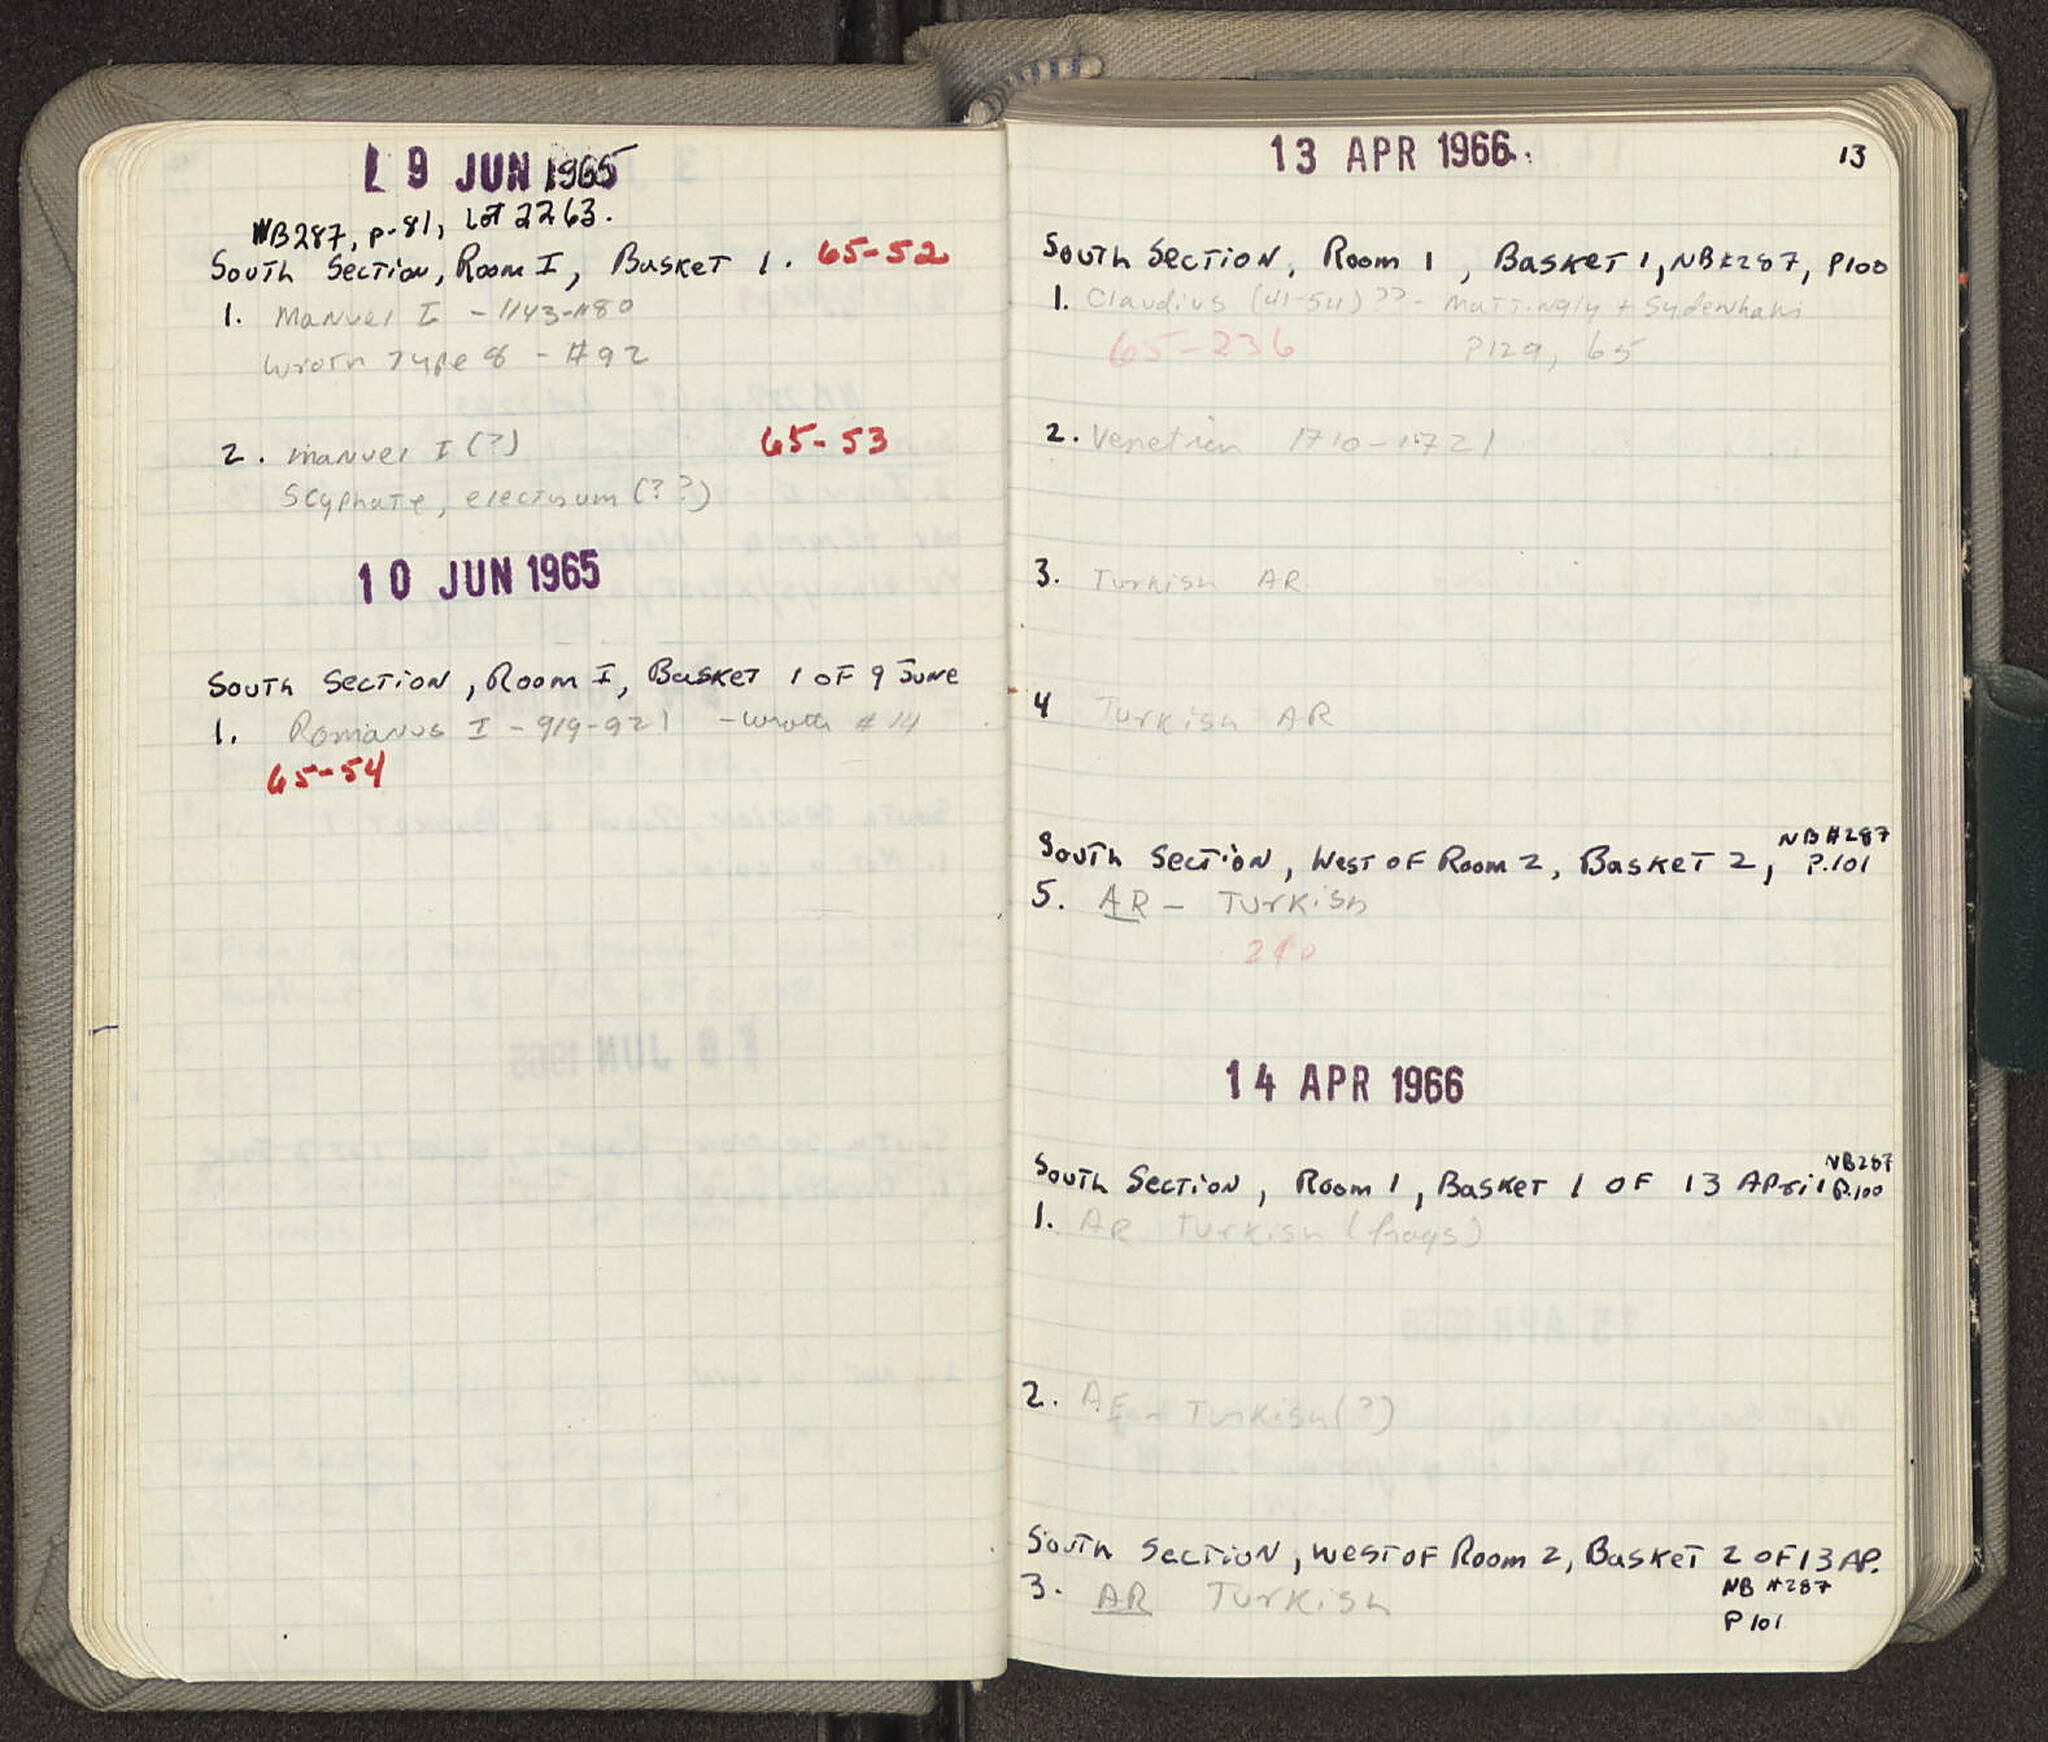 9 JUN 1965
NB287, p-81, Lot 2263.
South Section, Room I, Basket 1. 65-52
1. Manuel I - 1143-1180
Wroth Type 8 - #92
2. Manuel I (?) 65-53
Scyphate, electrum (??)
10 JUN 1965
South Section, Room I, Basket 1 of 9 June
1. Romanus I - 919-921 - Wroth #14
65-54
13
13 APR 1966.
South Section, Room 1, Basket 1, NB#287, P100
1. Claudius (41-54)?? - Mattingly + Sydenham
65-236 P129, 65
2. Venetian 1710-1721
3. Turkish AR
4 Turkish AR
South Section, West of Room 2, Basket 2, NB#287 P.101
5. AR - Turkish
14 APR 1966
South Section, Room 1, Basket 1 of 13 April NB287 P.100
1. AR Turkish (frags)
2. AE - Turkish (?)
South Section, West of Room 2, Basket 2 of 13 AP.
3. AR Turkish NB #287
P 101